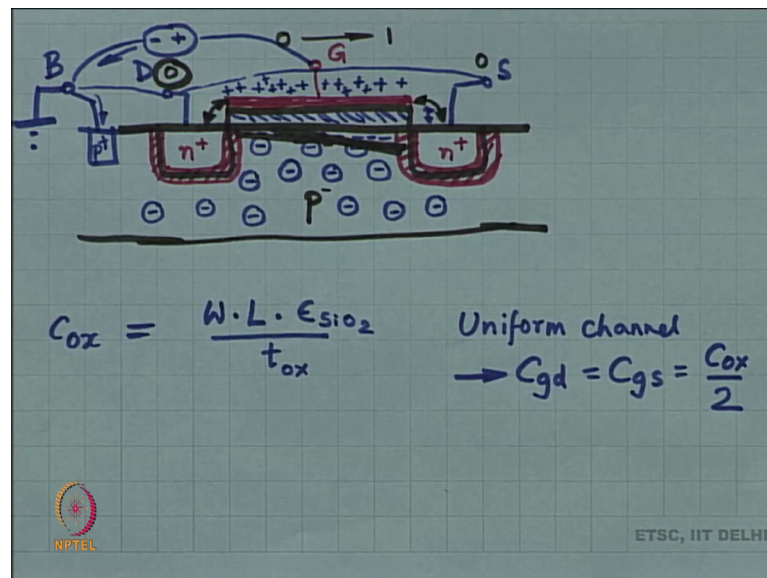 - +
0 → 1
B D 0 G 0 S
+ + + + + + + + + +
p+ n+ n+
p-
Cox = W.L. ϵSiO2 / tox
Uniform channel
→ Cgd = Cgs = Cox / 2
NPTEL
ETSC, IIT DELHI